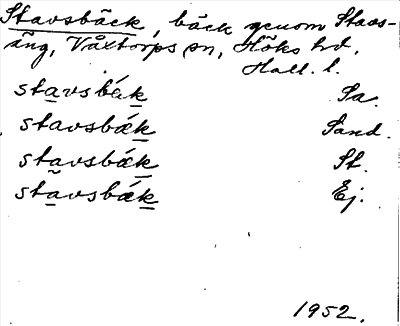 Stavsbäck, bäck genom Stavs-
äng, Våxtorps sn, Höks hd,
Hall. l.
stavsbǽk Sa.
stavsbǽk Sand.
stavsbǽk St.
stavsbǽk Ej.
1952.